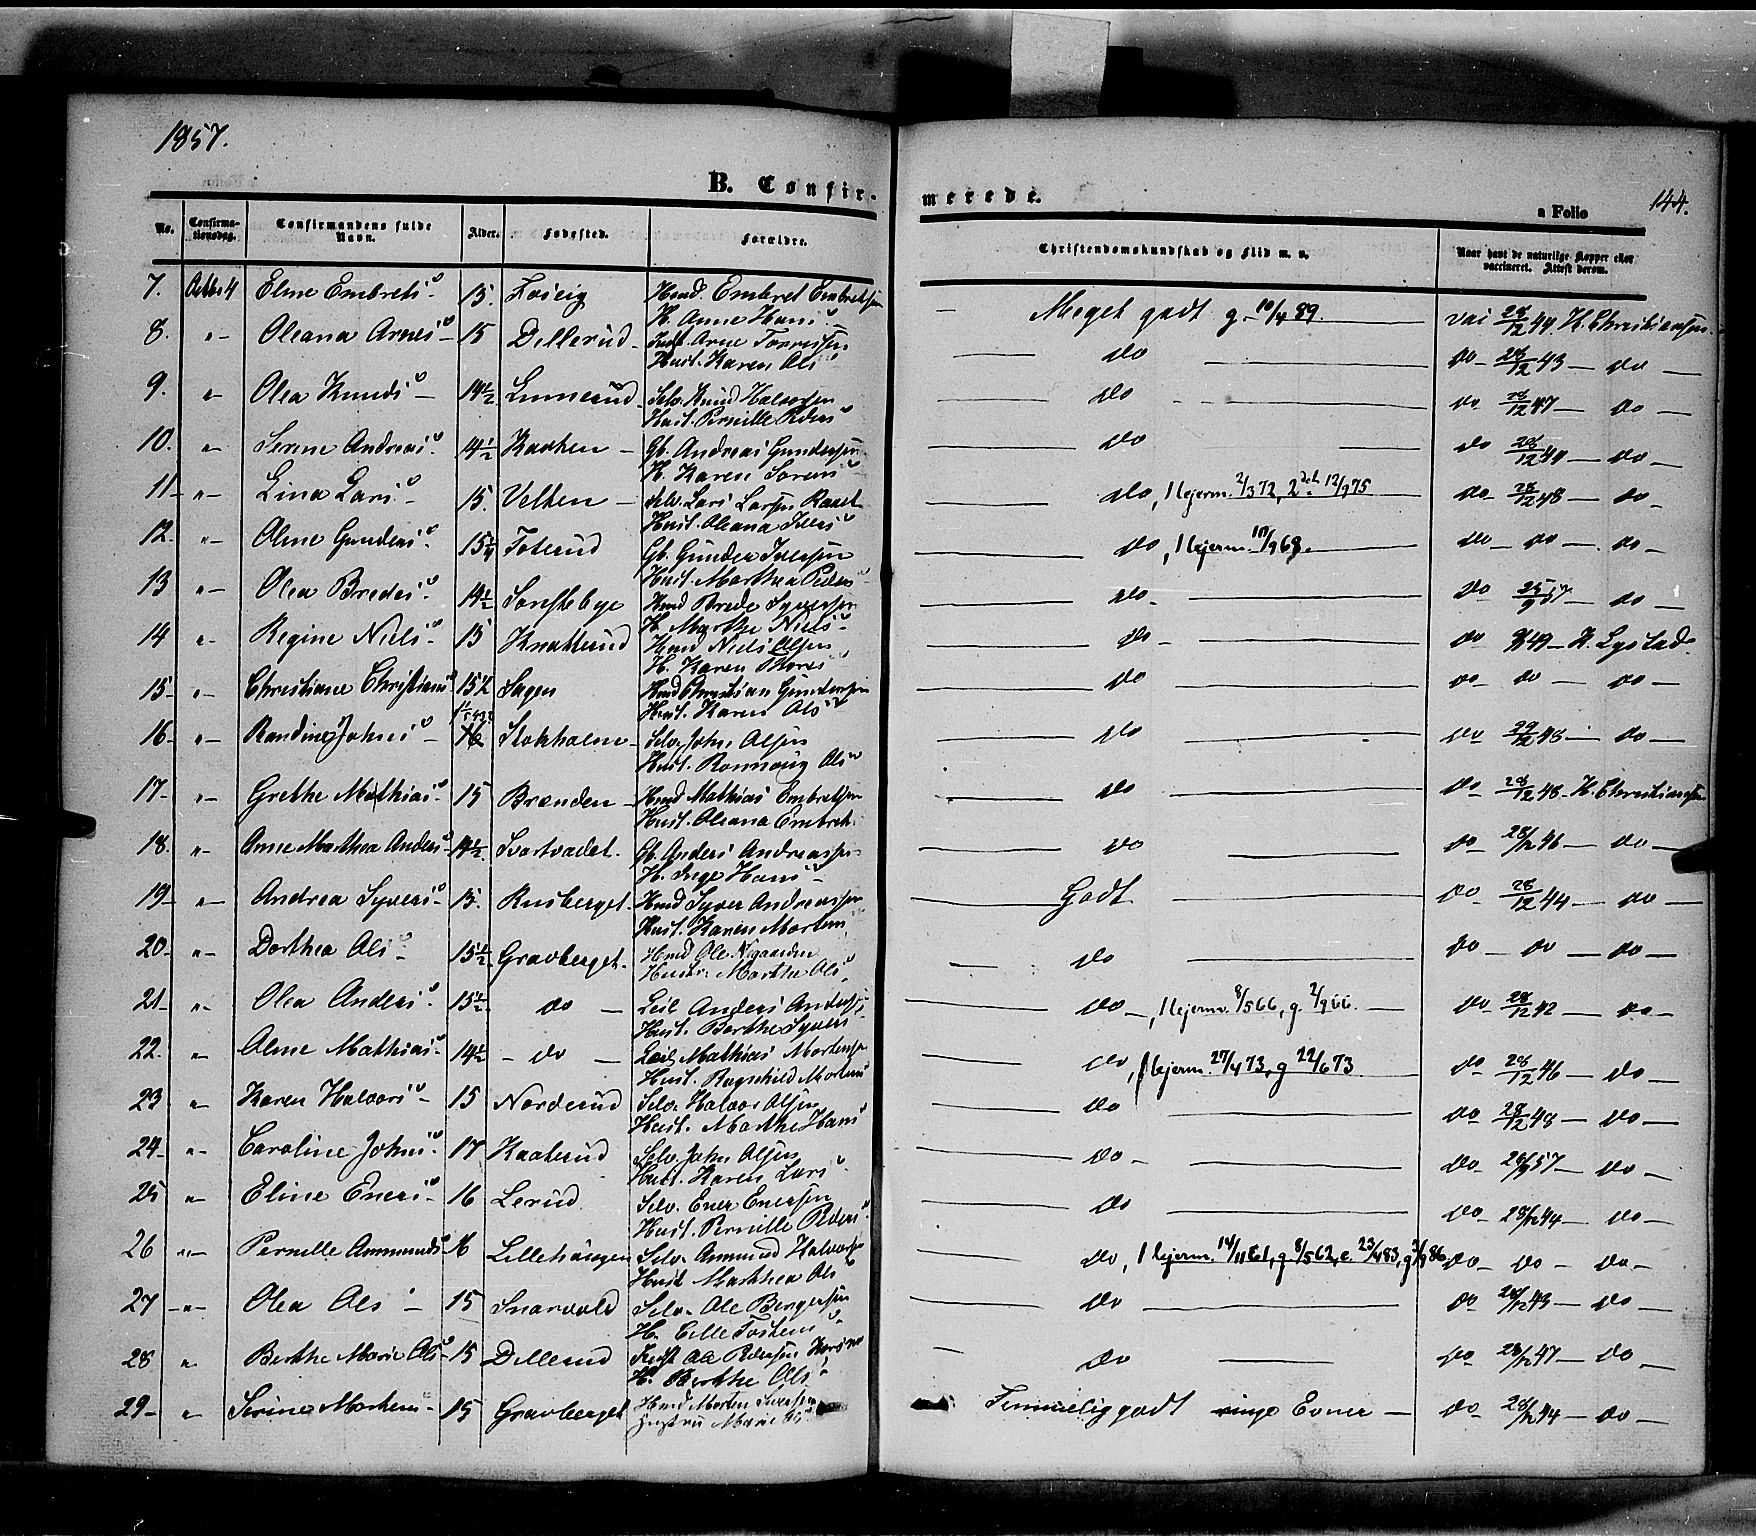 1857.
B. Confir-
merede.
144.
a Folio
No. Confirma-tionsdag. Confirmandens fulde Navn. Alder. Fødested. Forældre. Christendomskundskab og Flid m. v. Naar havt de naturlige Kopper eller vaccineret. Attest derom.
7. Octbr 4 Eline Embrets 15. Hmd. Embret Embretsen
H. Anne Hans
Meget godt g. 10/4 89. vac 28/12 44. H. Christiansen
8. " Oleana Arnes 15 Dellerud Arne
Hust. Karen Ols
do do 28/12 43 - do
9. " Olea Knuds 14½ Linnerud Selv. Knud Halvorsen
Hust. Pernille Peders
do do 28/12 47 - do
10. " Serine Andreas 14½ Gb. Andreas Gundersen
H. Karen Sorens
do do 28/12 44 - do
11 " Lina Lars 15. Velten Selv. Lars Larsen
Hust. Oleana Ivers
do, 1 lejerm. 2/3 72, 2det 12/9 75 do 28/12 48 - do
12. " Oline Gunders 15¼ Toterud Gb. Gunder Iversen
Hust. Marthea Peders
do, 1 lejerm. 17/9 68. do - do - do
13 " Olea Bredes 14½ Hmd Brede Syversen
H. Marthe Niels
do do 25/9 57 - do
14 " Regine Niels 15 Knatterud Hmd Niels Olsen
H. Karen Thores
do do 49 - K. Lystad
15 " Christiane Christians 15½ Sagen Hmd Christian Gundersen
Hust. Karen Ols
do do - do - do
16 " Randine Johns 16 Stokholm Selv. John Olsen
Hust. Rønnoug Ols
do do 29/12 48 - do
17 " Grethe Mathias 15 Brænden Hmd Mathias Embretsen
Hust. Oleana Embrets
do do 28/12 48 - H. Christiansen
18. " Anne Marthea Anders 14½ Svartvadet. Gb. Anders Andreassen
H. Inge Hans
do do 28/12 46 - do
19 " Andrea Syvers 15. Rusberget. Hmd Syver Andreassen
Hust. Karen Mortens
Godt do 28/12 44 - do
20 " Dorthea Ols 15½ Gravberget. Hmd Ole
Hustr. Marthe Ols
do do - do - do
21 " Olea Anders 15½ do Leil Anders Andersen
Hust. Berthe Syvers
do, 1 lejerm. 8/5 66, g. 2/9 66. do 28/12 42 - do
22. " Oline Mathias 14½ do Leil Mathias Mortensen
Hust. Ragnhild Mortens
do, 1 lejerm. 27/4 73, g 22/6 73 do 28/12 46 - do
23 " Karen Halvors 15 Norderud Selv. Halvor Olsen
Hust. Marthe Hans
do do 28/12 48 - do
24 " Caroline Johns 17 Kaaterud Selv. John Olsen
Hust. Karen Lars
do do 28/9 57 - do
25 " Eline Eners 16 Lerud Selv. Ener Enersen
Hust. Pernille Peders
do do 28/12 44 - do
26 " Pernille Ammunds 16 Lillehaugen Selv. Amund Halvorsen
Hust Marthea Ols
do, 1 lejerm. 14/11 61, g 8/5 62, e. 23/4 83, g 86. do - do - do
27 " Olea Ols 15 Snarvold Selv. Ole Bergersen
H. Eille Tostens
do do 28/12 43 - do
28 " Berthe Marie Ols 15 Dellerud Ole Pedersen
H. Berthe Ols
do do 28/12 47 - do
29 " Serine Mortens 15 Gravberget Hmd Morten Iversen
Hustru Marie
Temmelig godt ringe Evner do 28/12 44 - do